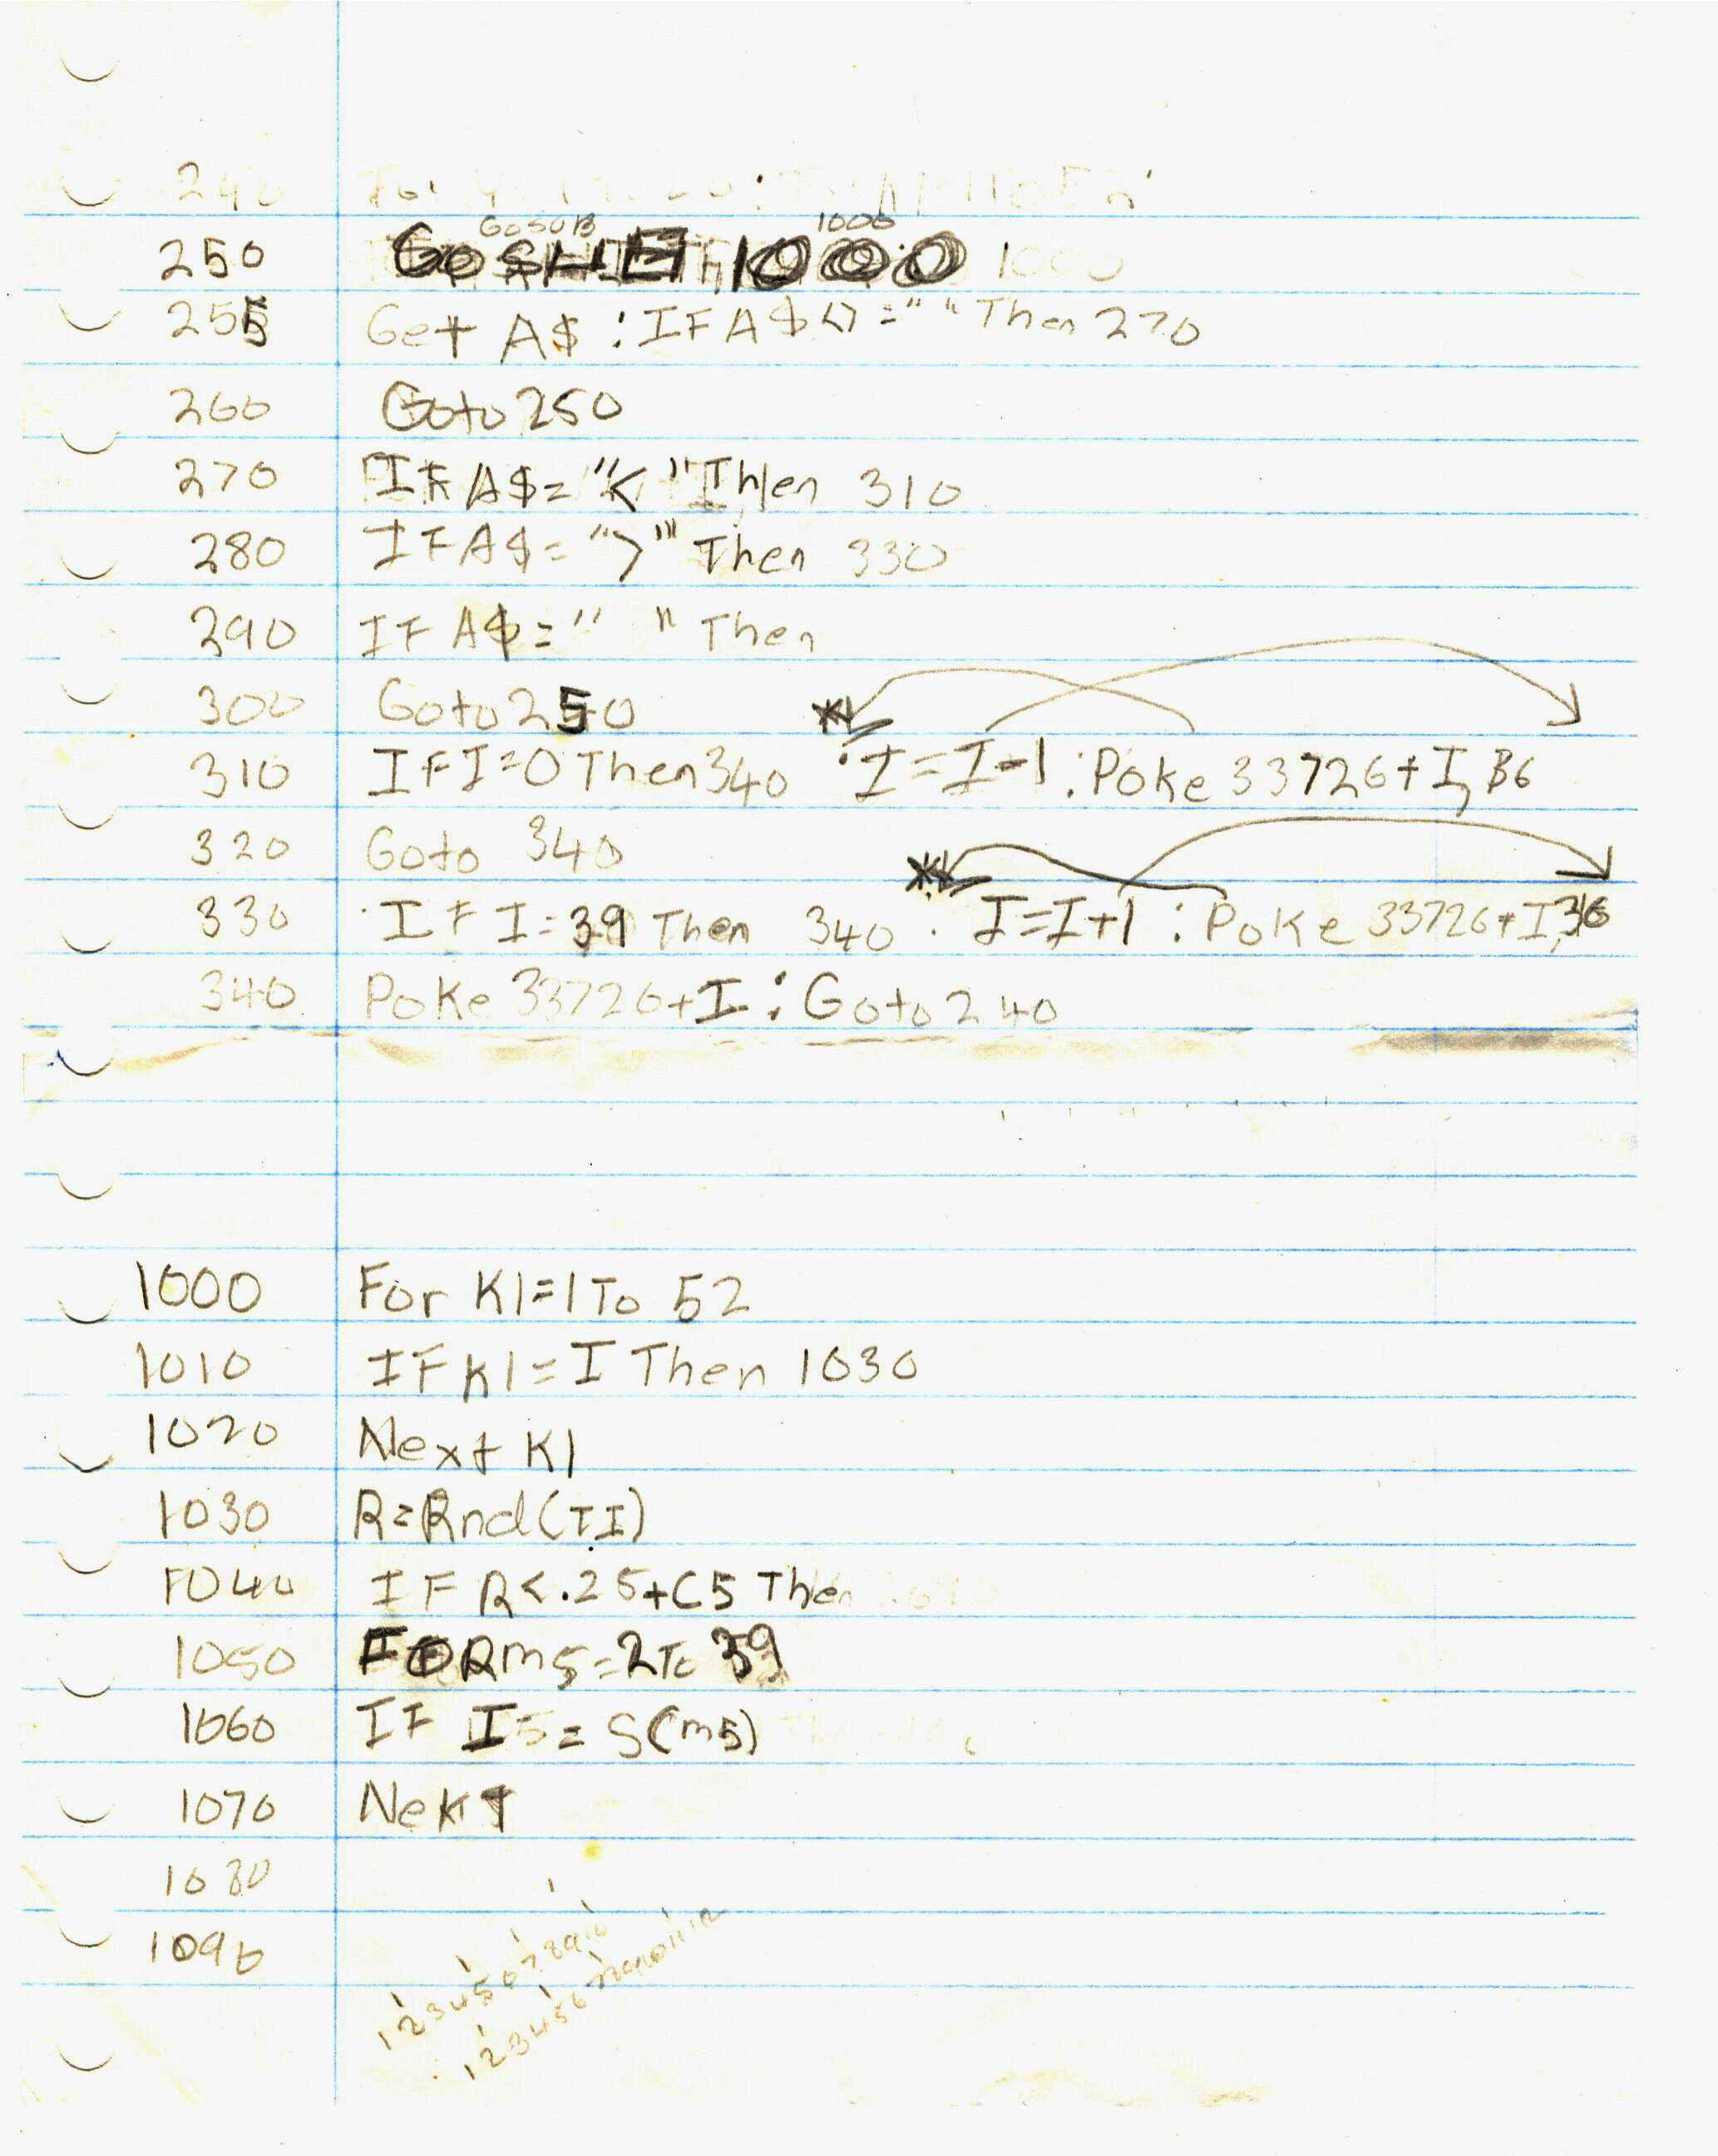 240
Gosub 1000
250 GOSUB 1000 1000
255 Get A$ : IF A$<>="" Then 270
260 Goto 250
270 IF A$="<" Then 310
280 IF A$=">" Then 330
290 IF A$=" " Then
300 Goto 250
310 IF I=0 Then 340 : I=I-1 : Poke 33726+I,
320 Goto 340
330 IF I=39 Then 340 : I=I+1 : Poke 33726+I,
340 Poke 33726+I : Goto 240
1000 For K1=1 To 52
1010 IF K1=I Then 1030
1020 Next K1
1030 R=Rnd(TI)
1040 IF R<.25+C5 Then
1050 FORM5=2 To 39
1060 IF I5=S(M5)
1070 Next
1080
1090
1 2 3 4 5 6 7 8 9 10
1 2 3 4 5 6 7 8 9 10 11 12